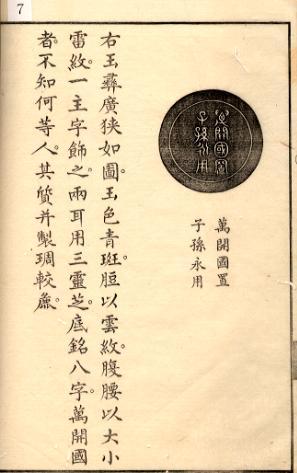 7
萬開國置
子孫永用
萬開國置
子孫永用
右玉彝廣狹如圖。玉色青斑。脰以雲紋。腹腰以大小
雷紋。一主字飾之。兩耳用三靈芝。底銘八字。萬開國
者。不知何等人。其質并製琱較麄。